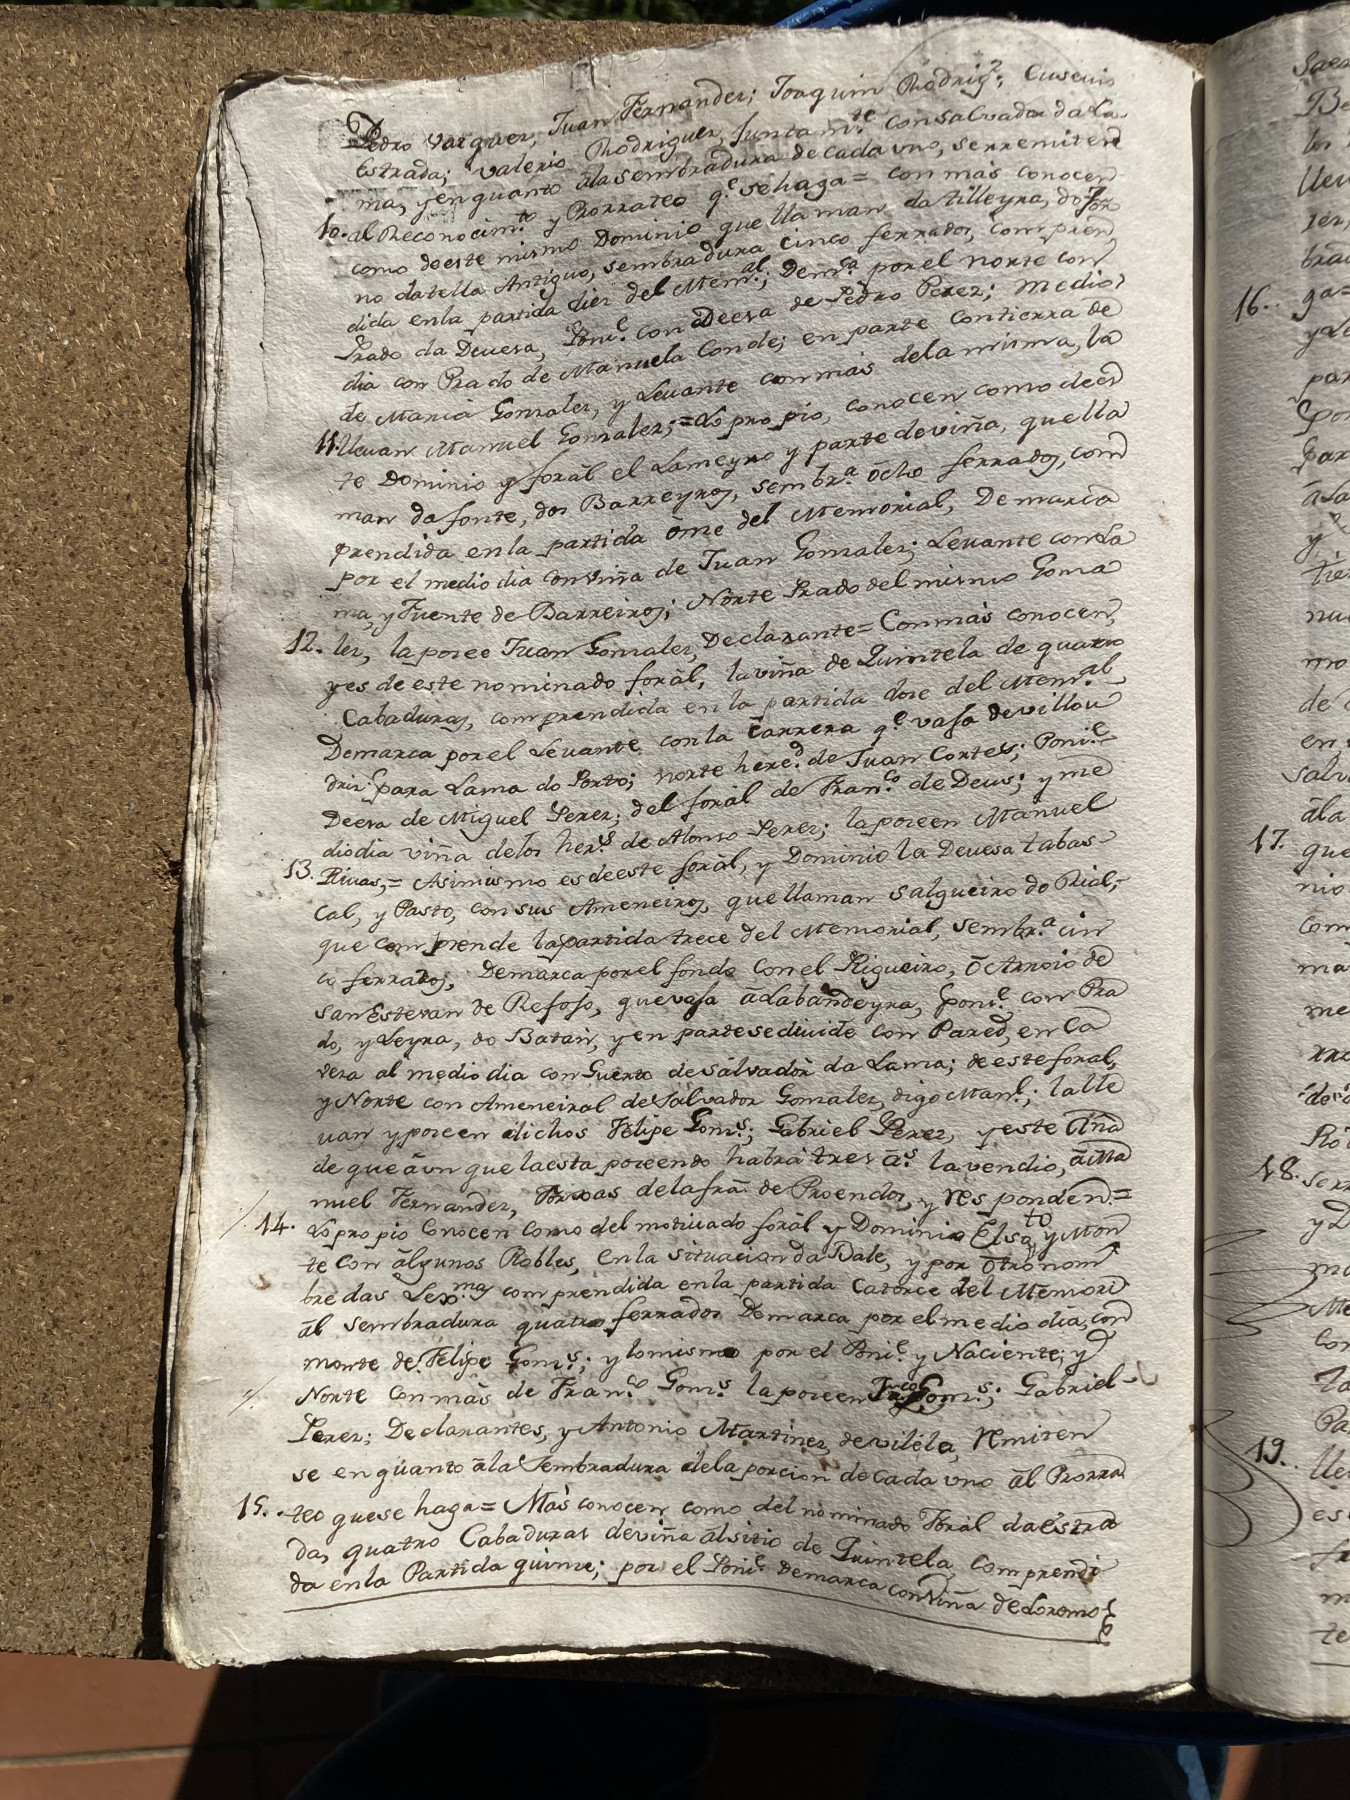 Pedro Vazquez, Juan Fernandez; Joaquin Rodrig.z; Eusevio
Estrada; Valerio Rhodriguez, Juntam.te con Salvador da La
ma, y en quanto â la sembradura de cada vno, se rremiten
al Reconocim.to y Prorrateo q.e se haga = con más conocen
10. como de este mismo Dominio que llaman da tilleyra, do For
no da tella Antiguo, sembradura cinco ferrados, compren
dida en la partida diez del Mem.al; Dem.ca por el norte con
Prado da Devesa, Poni.e con Deesa de Pedro Perez; medio
dia con Prado de Manuela Conde; en parte con tierra de
de Maria Gonzalez, y Levante con más de la misma, la
11. llevan Manuel Gonzalez; = Lo propio, conocen como de es
te Dominio y forâl el Lameyro y parte de viña, que lla
man da fonte, dos Barreyros, sembr.a ôcho ferrados, com
prendida en la partida ônze del Memorial, Demarca
por el medio dia con viña de Juan Gonzalez; Levante con La
ma, y Fuente de Barreiros; Norte Prado del mismo Gonza
12. lez, la posee Juan Gonzalez, Declarante = Con más conocen,
y es de este nominado forâl, la viña de Quintela de quatro
Cabaduras, comprendida en la partida doze del Mem.al
Demarca por el Levante con la Carrera q.e vaja de villou
driz para Lama do Porto; norte here.d de Juan Cortes; Poni.e
Deesa de Miguel Perez; del forâl de Fran.co de Deus; y me
diodia viña delos her.s de Alonso Perez; la poseen Manuel
13. Rivas, = Asimismo es de este forâl, y Dominio la Devesa tabas-
cal, y Pasto, con sus Ameneiros, que llaman Salgueiro do Rial,
que comprende la partida trece del Memorial, sembr.a cin
co ferrados, Demarca por el fondo con el Rigueiro, ô Arroio de
San Estevan de Refojo, que vaja â Labandeyra, Poni.e con Pra
do, y Leyra, do Batan, y en parte se divide con Pared, en Ca
vera al medio dia con Guerto de Sâlvadôr da Lama; de este foral,
y Norte con Ameneiral de Salvador Gonzalez, digo Man.l; la lle
van y poseen dichos Felipe Gom.s; Gabriel Perez, y este
de que âvn que la esta poseendo habrà tres â.s la vendio, â Ma
nuel Fernandez, Porxas de la fra. de Proendos, y responden =
14. Lo propio Conocen como del motivado forâl y Dominio El sa to y Mon
te con âlgunos Robles, en la Situacion da Bale, y por ôtro nom
bre das comprendida en la partida Catorce del Memori
âl sembradura quâtro ferrados Demarca por el medio dia, con
monte de Felipe Gom.s; y lo mismo por el Poni.e y Naciente; y
Norte con más de Fran.co Gom.s la poseen Fr.co Gom.s; Gabriel
Perez; Declarantes, y Antonio Martinez, de vilêla, remiten
se en quanto â la Sembradura dela porcion de cada vno âl Prorra
15. teo que se haga = Mas conocen como del nominado Forâl da estra
da, quatro Cabaduras de viña âl sitio de Quintela, comprendi
da en la Partida quinze; por el Poni.e Demarca con viña de Lorenzo
Saer
Be
16.
ga=
par
por
par
tier
nu
mo
de
en
salv
âla
17.
que
nio
com
ma
me
18.
serr
y D
ma
Me
con
Pa
19.
lle
es
te